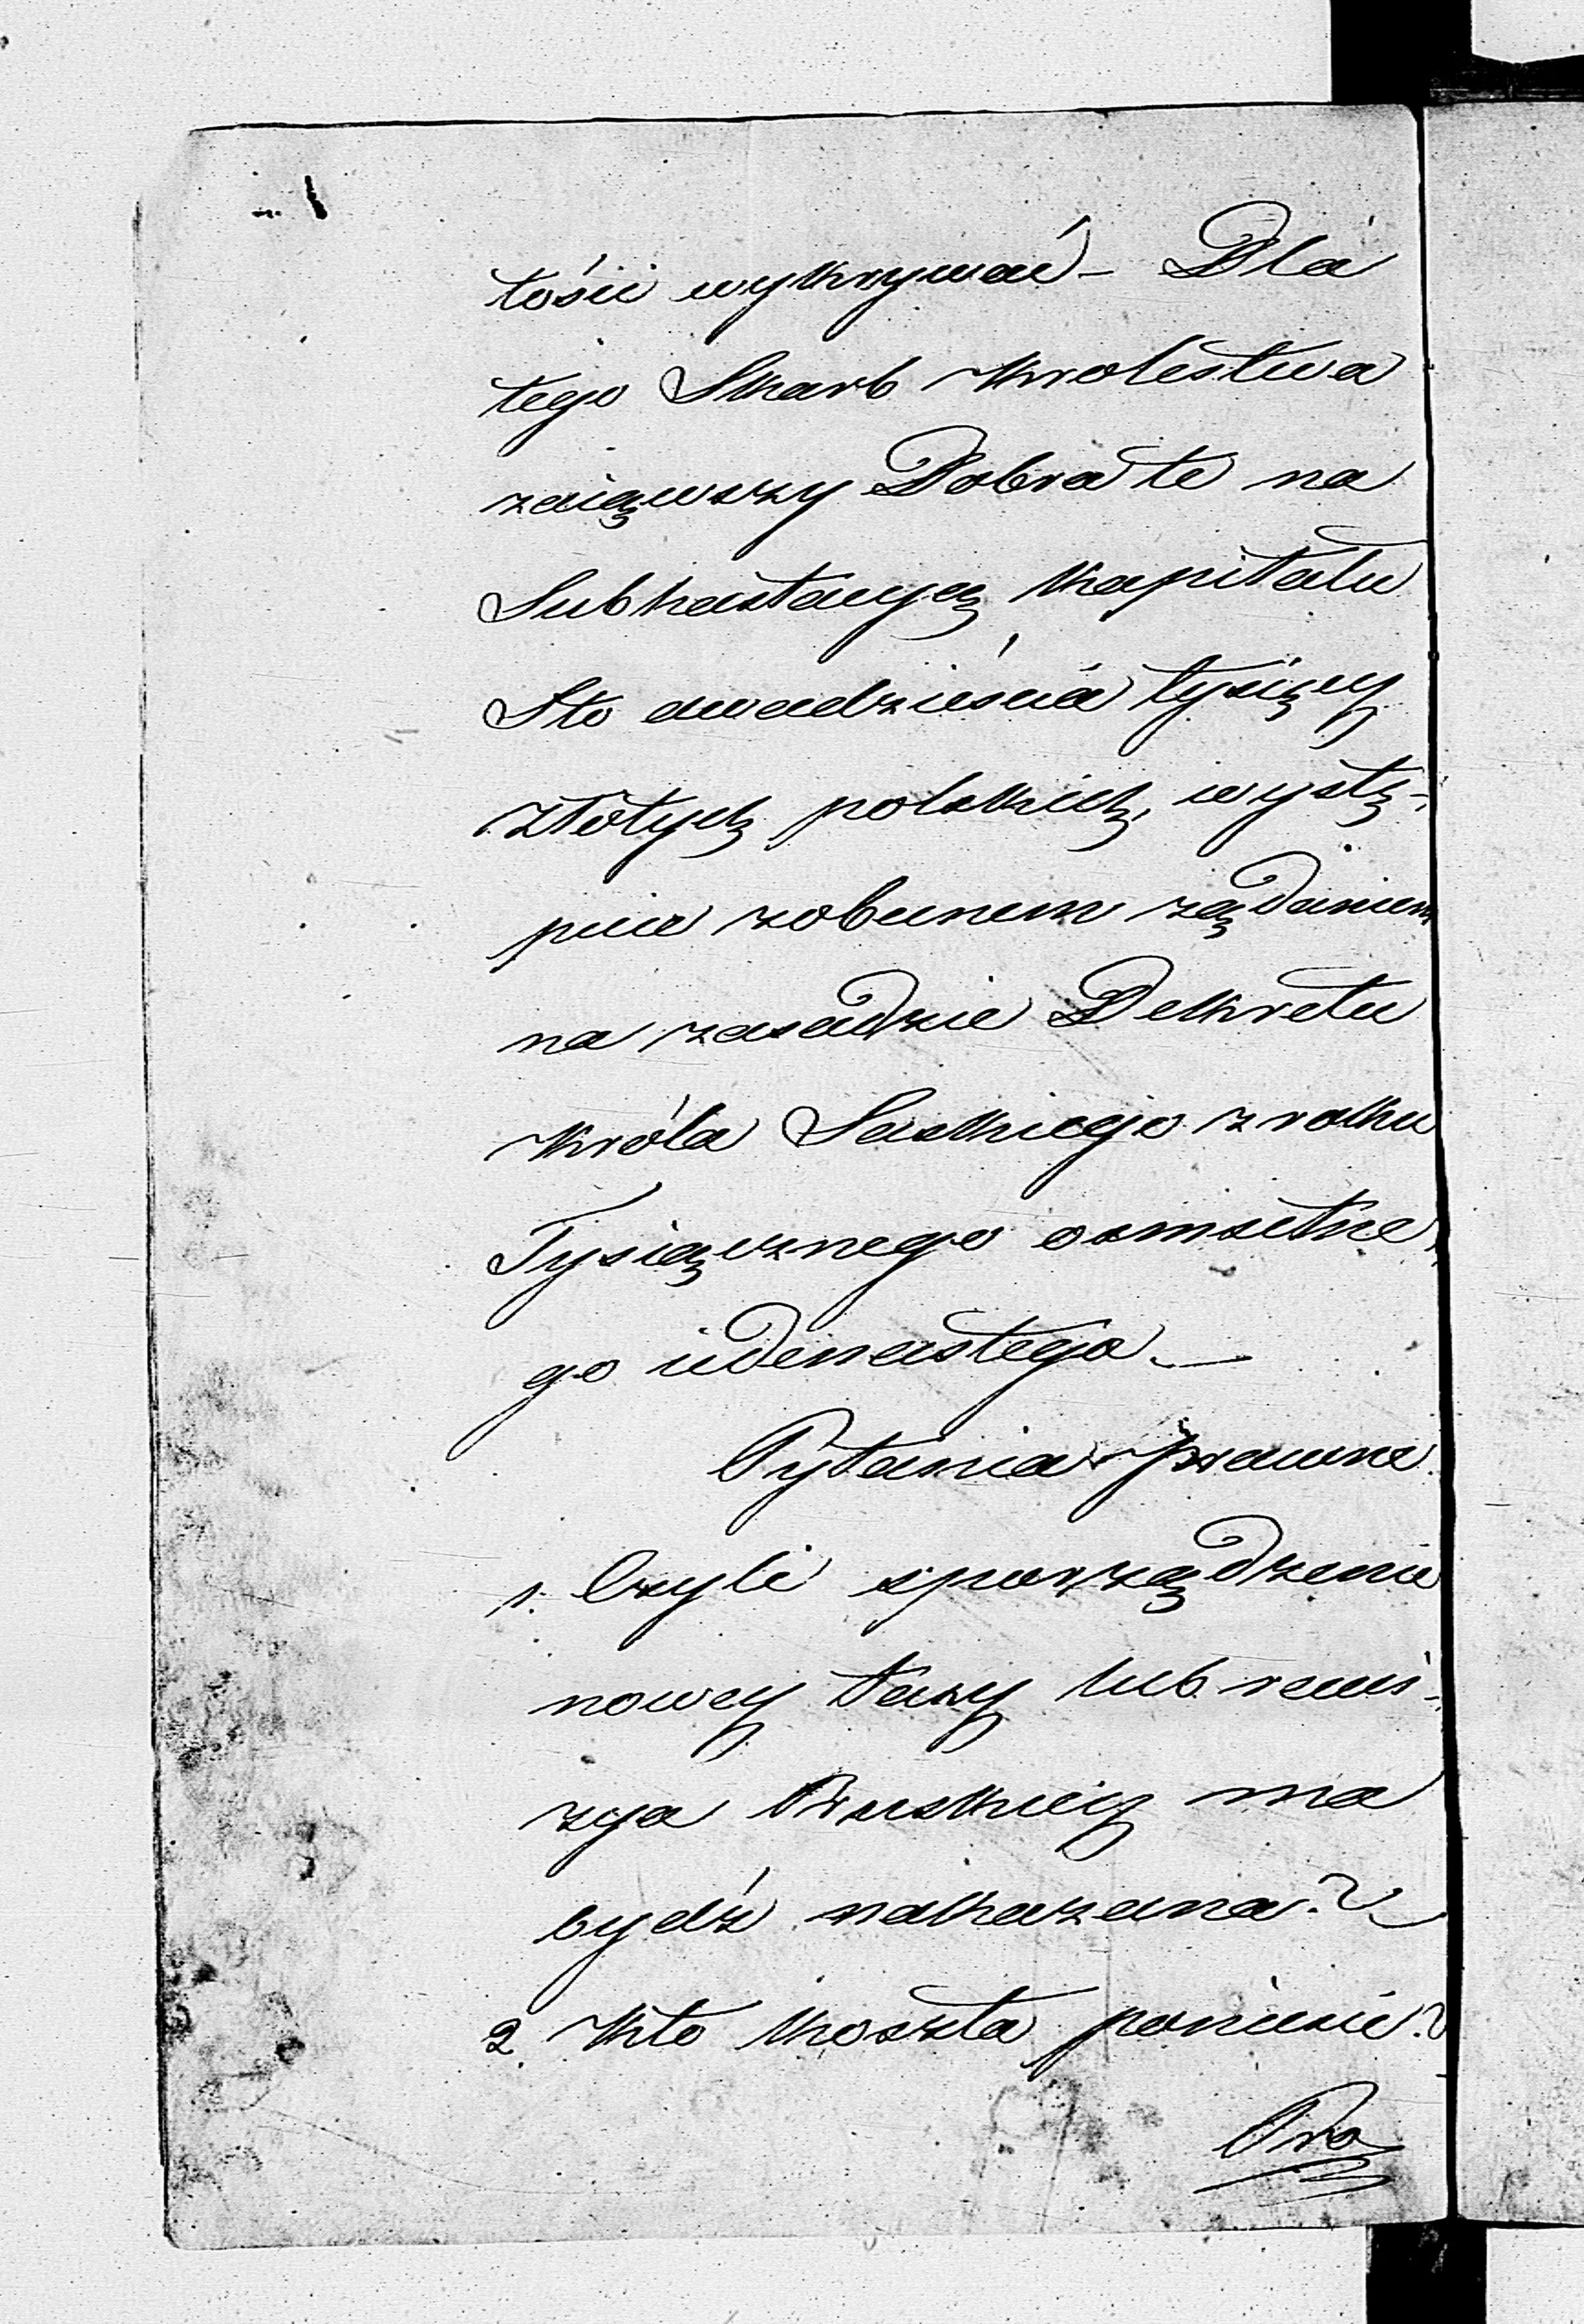 tości wykrywać – Dla
tego Skarb Krolestwa
zaiąwszy Dobra te na
Subhastacyą kapitału
Sto dwadzieścia tysięcy
złotych polskich, wystę-
puie z obecnem żądaniem
na zasadzie Dekretu
Króla Saskiego z roku
Tysiącznego osmsetne,
go iedenastego. —
Pytania prawne
1. Czyli sporządzenie
nowey taxy lub rewi-
zya Pruskiey ma
bydź nakazana?
2. Kto koszta poniesie?
Pra